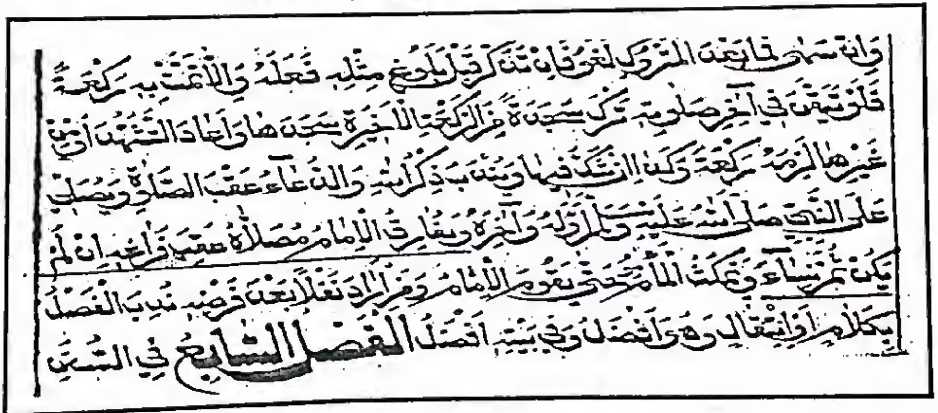 وَاِنْ سَهٰى فَمَا بَعْدَ الْمَتْرُوكِ لَغْوٌ فَاِنْ تَذَكَّرَ قَبْلَ بُلُوغِ مِثْلِهِ فَعَلَهُ وَاِلَّا تَمَّتْ بِهِ رَكْعَتُهُ
فَلَوْ تَيَقَّنَ فِي آخِرِ صَلٰوتِهِ تَرْكَ سَجْدَةٍ مِنَ الرَّكْعَةِ الْاَخِيرَةِ سَجَدَهَا وَاَعَادَ التَّشَهُّدَ اَوْ مِنْ
غَيْرِهَا لَزِمَهُ رَكْعَةٌ وَكَذَا اِنْ شَكَّ فِيهَا وَيُنْدَبُ ذِكْرُ اللّٰهِ وَالدُّعَاءُ عَقِبَ الصَّلٰوةِ وَيُصَلِّي
عَلَى النَّبِيِّ صَلَّى اللّٰهُ عَلَيْهِ وَسَلَّمَ اَوَّلَهُ وَآخِرَهُ وَيُفَارِقُ الْاِمَامُ مُصَلَّاهُ عَقِبَ فَرَاغِهِ اِنْ لَمْ
يَكُنْ ثَمَّ نِسَاءٌ وَيَمْكُثُ الْمَأْمُومُ حَتّٰى يَقُومَ الْاِمَامُ وَمَنْ اَرَادَ نَفْلًا بَعْدَ فَرْضِهِ نُدِبَ الْفَصْلُ
بِكَلَامٍ اَوِ انْتِقَالٍ وَهُوَ اَفْضَلُ وَفِي بَيْتِهِ اَفْضَلُ الْفَصْلُ السَّابِعُ فِي السُّنَنِ